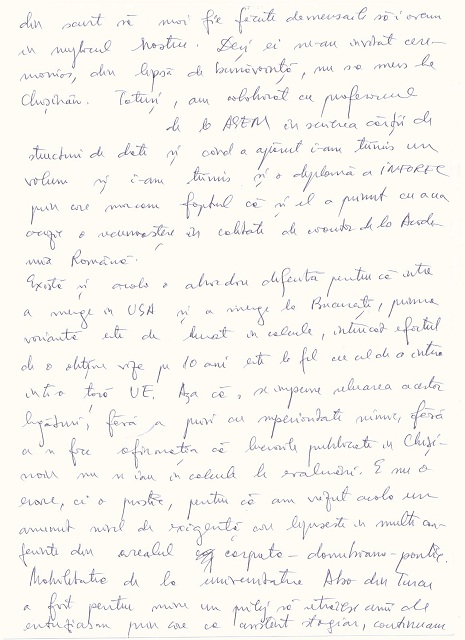 din scurt să mai fie făcute demersuri să-i avem
în mijlocul nostru. Deși ei ne-au invitat cere-
monios, din lipsă de bunăvoință, nu s-a mers la
Chișinău. Totuși, am colaborat cu profesorul
de la ASEM în scrierea cărții de
structuri de date și când a apărut i-am trimis un
volum și i-am trimis și o diplomă a INFOREC
prin care marcam faptul că și el a primit cu acea
ocazie o recunoaștere în calitate de coautor de la Acade-
mia Română.
Există și acolo o abordare diferită pentru că între
a merge în USA și a merge la București, prima
variantă este de luat în calcule, întrucât efortul
de a obține vize pe 10 ani este la fel cu cel de a intra
într-o țară UE. Așa că, se impune reluarea acestor
legături, fără a privi cu superioritate nimic, fără
a se face afirmația că lucrările publicate în Chiși-
nău nu se iau în calcule la evaluări. E nu o
eroare, ci o prostie, pentru că am văzut acolo un
anumit nivel de exigență care lipsește în multe con-
ferințe din arealul carpato-danubiano-pontic.
Mobilitatea de la universitatea Abo din Turcu
a fost pentru mine un prilej să retrăiesc anii de
entuziasm prin care ca asistent stagiar, continuam